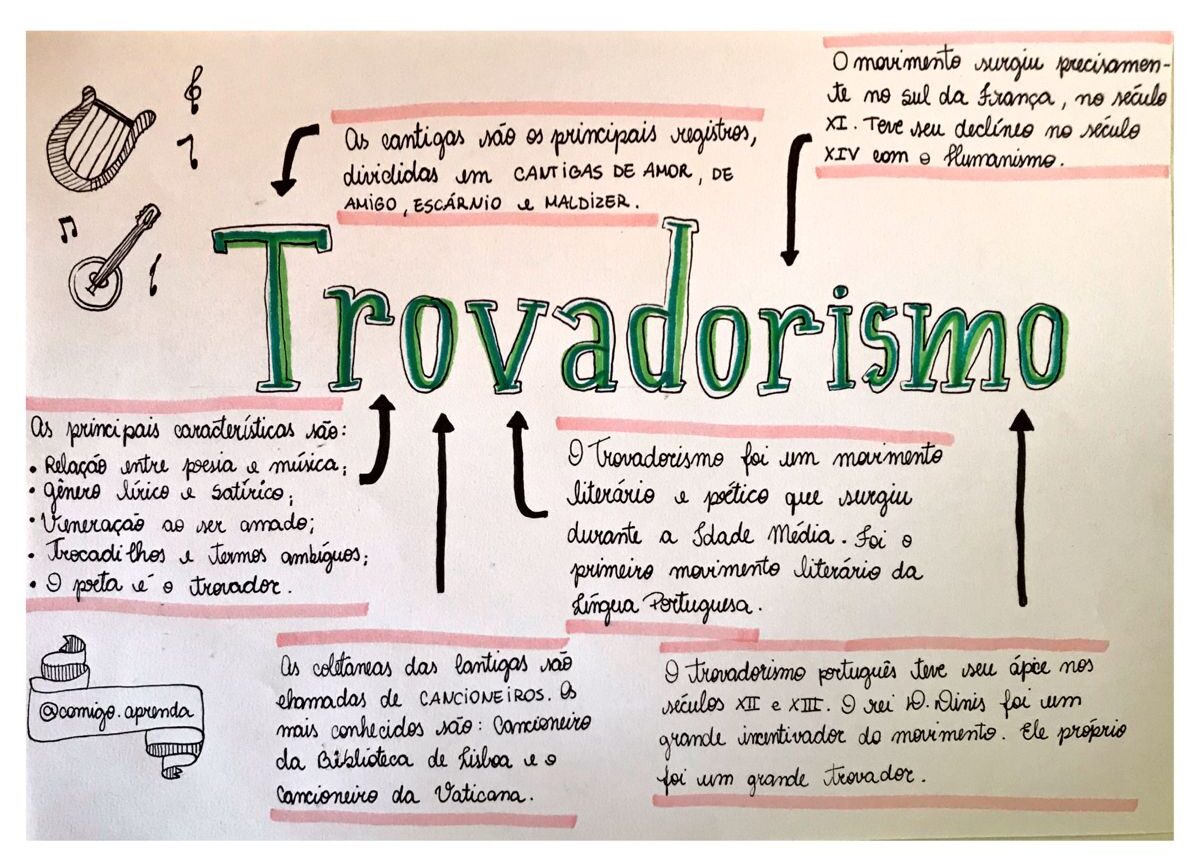 O movimento surgiu precisamen-
te no sul da França, no século
XI. Teve seu declíneo no século
XIV com o Humanismo.
As cantigas são os principais registros,
divididas em CANTIGAS DE AMOR, DE
AMIGO, ESCÁRNIO e MALDIZER.
Trovadorismo
As principais características são:
• Relação entre poesia e música;
• Gênero lírico e Satírico;
• Veneração ao ser amado;
• Trocadilhos e termos ambíguos;
• O poeta é o trovador.
O Trovadorismo foi um movimento
literário e poético que surgiu
durante a Idade Média. Foi o
primeiro movimento literário da
Língua Portuguesa.
@comigo.aprenda
As coletaneas das Cantigas são
chamadas de CANCIONEIROS. Os
mais conhecidos são: Cancioneiro
da Biblioteca de Lisboa e o
Cancioneiro da Vaticana.
O Trovadorismo português teve seu ápice nos
séculos XII e XIII. O rei D. Dinis foi um
grande incentivador do movimento. Ele próprio
foi um grande trovador.